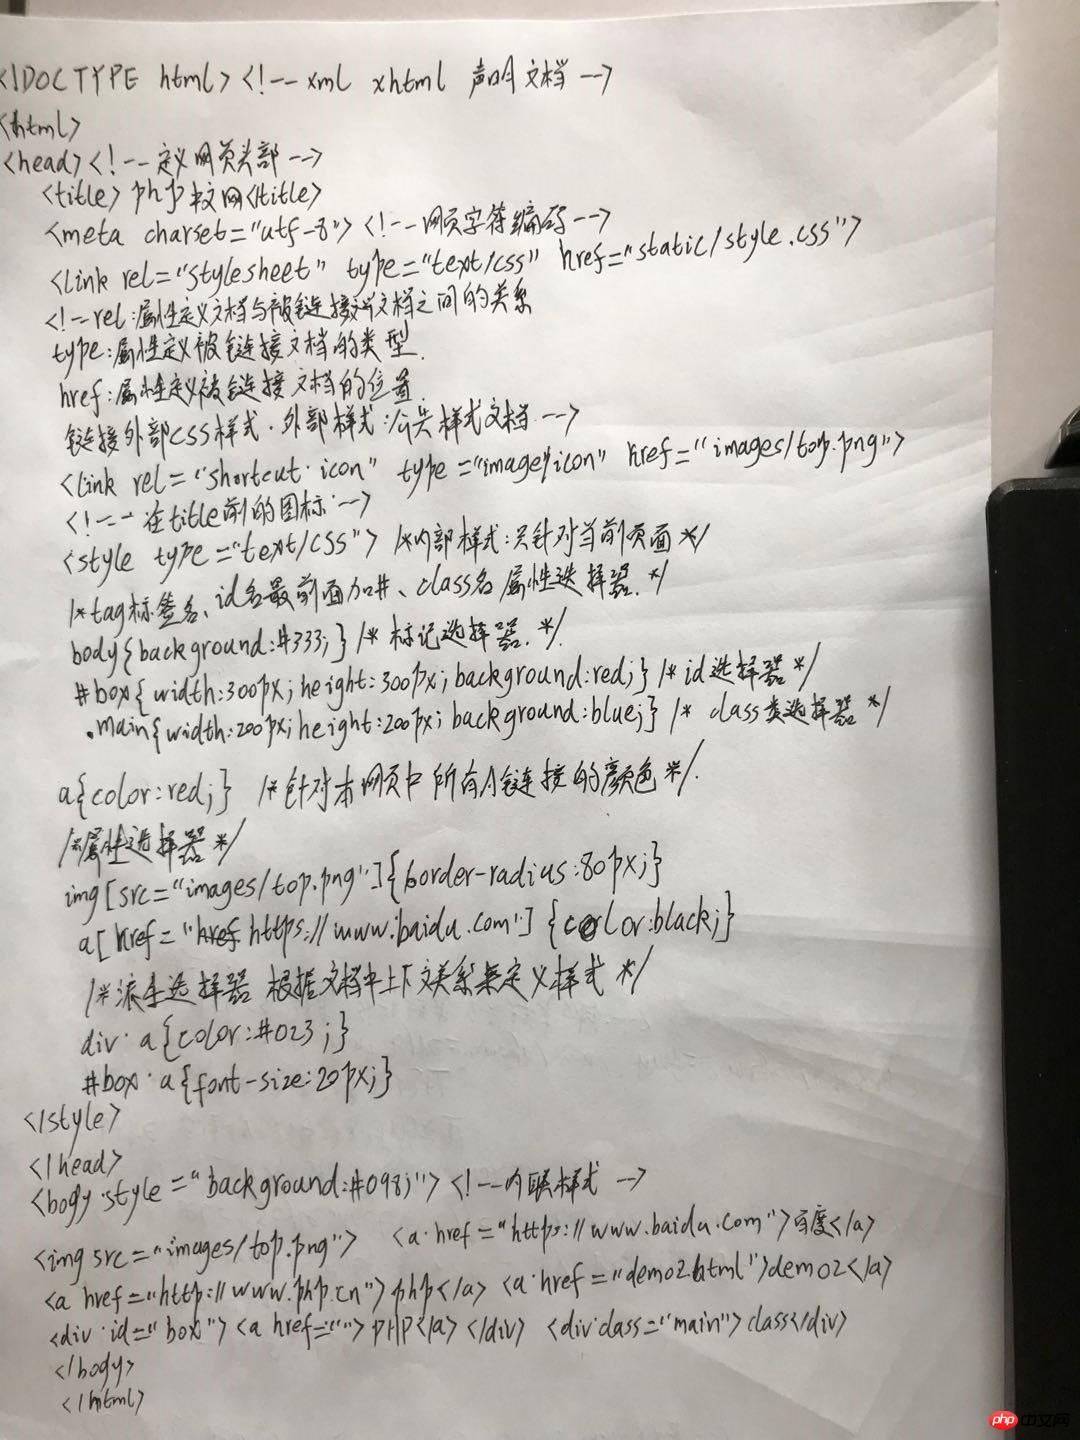 <!DOCTYPE html> <!-- xml xhtml 声明文档 -->
<html>
<head> <!-- 定义网页头部 -->
<title> php中文网</title>
<meta charset="utf-8"> <!-- 网页字符编码 -->
<link rel="stylesheet" type="text/css" href="static/style.css">
<!-- rel:属性定义文档与被链接文档之间的关系
type:属性定义被链接文档的类型.
href:属性定义被链接文档的位置.
链接外部css样式.外部样式:公共样式文档 -->
<link rel="shortcut icon" type="image/icon" href="images/top.png">
<!-- 在title前的图标 -->
<style type="text/css"> /*内部样式:只针对当前页面*/
/*tag标签名、id名最前面加#、class名 属性选择器.*/
body{background:#333;} /* 标记选择器.*/
#box{width:300px;height:300px;background:red;} /* id选择器*/
.main{width:200px;height:200px;background:blue;} /* class类选择器*/
a{color:red;} /*针对本网页中所有A链接的颜色*/.
/*属性选择器*/
img[src="images/top.png"]{border-radius:80px;}
a[href="https://www.baidu.com"] {color:black;}
/*派生选择器 根据文档中上下文关系来定义样式 */
div a{color:#023;}
#box a{font-size:20px;}
</style>
</head>
<body style="background:#098;"> <!-- 内联样式 -->
<img src="images/top.png"> <a href="https://www.baidu.com">百度</a>
<a href="http://www.php.cn">php</a> <a href="demo2.html">demo2</a>
<div id="box"> <a href=""> PHP</a> </div> <div class="main"> class</div>
</body>
</html>
php 中文网